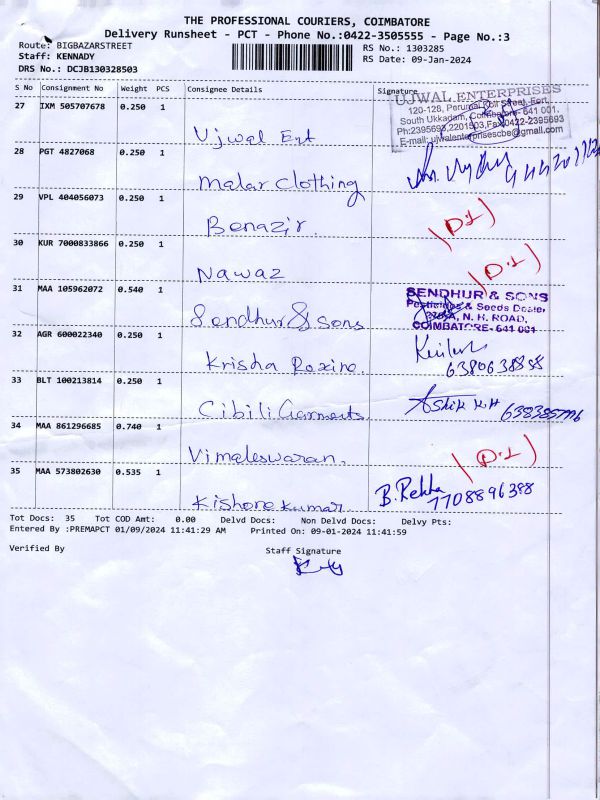 THE PROFESSIONAL COURIERS, COIMBATORE
Delivery Runsheet - PCT - Phone No.:0422-3505555 - Page No.:3
Route: BIGBAZARSTREET
RS No.: 1303285
Staff: KENNADY
RS Date: 09-Jan-2024
DRS No.: DCJB130328503
S No Consignment No Weight PCS Consignee Details Signature
27 IXM 505707678 0.250 1
UJWAL ENTERPRISES
120-128, Perumal Koil Street, Fort,
South Ukkadam, Coimbatore- 641 001.
Ph:2395693,2201903,Fax:0422-2395693
E-mail: ujwalenterprisescbe@gmail.com
Ujwal Ent
28 PGT 4827068 0.250 1
Malar Clothing
29 VPL 404056073 0.250 1
Benazir. (D.1)
30 KUR 7000833866 0.250 1
Nawaz (D.1)
31 MAA 105962072 0.540 1
SENDHUR & SONS
Pesticides & Seeds Dealer,
N. H. ROAD,
COIMBATORE- 641 001
Sendhur & Sons
32 AGR 600022340 0.250 1
Krisha Roxine. 6380638888
33 BLT 100213814 0.250 1
Cibili Garments Ashik K.H
34 MAA 861296685 0.740 1
Vimaleswaran. (D.1)
35 MAA 573802630 0.535 1
Kishore kumar. B. Rekha 7708896388
Tot Docs: 35 Tot COD Amt: 0.00 Delvd Docs: Non Delvd Docs: Delvy Pts:
Entered By :PREMAPCT 01/09/2024 11:41:29 AM Printed On: 09-01-2024 11:41:59
Verified By Staff Signature